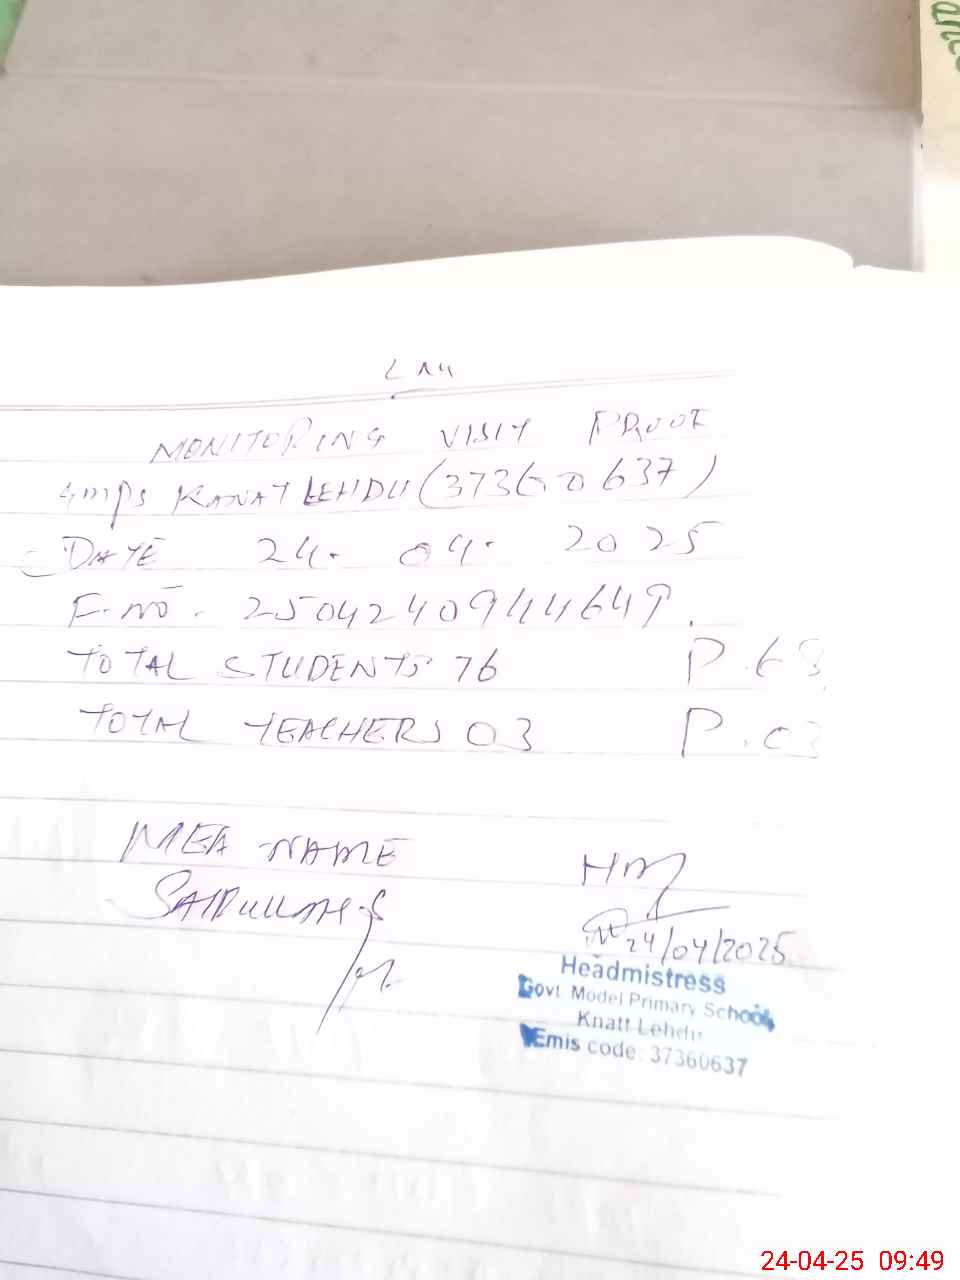 MONITORING VISIT PROOF
GMPS KANAT LEHDU (37360637)
DATE 24. 04. 2025
F. NO. 2504240944649.
TOTAL STUDENTS 76 P. 63
TOTAL TEACHERS 03 P. 03
MEA NAME HM
SAIDULLAH
24/04/2025
Headmistress
Govt. Model Primary School
Knatt Lehdu
Emis code: 37360637
24-04-25 09:49